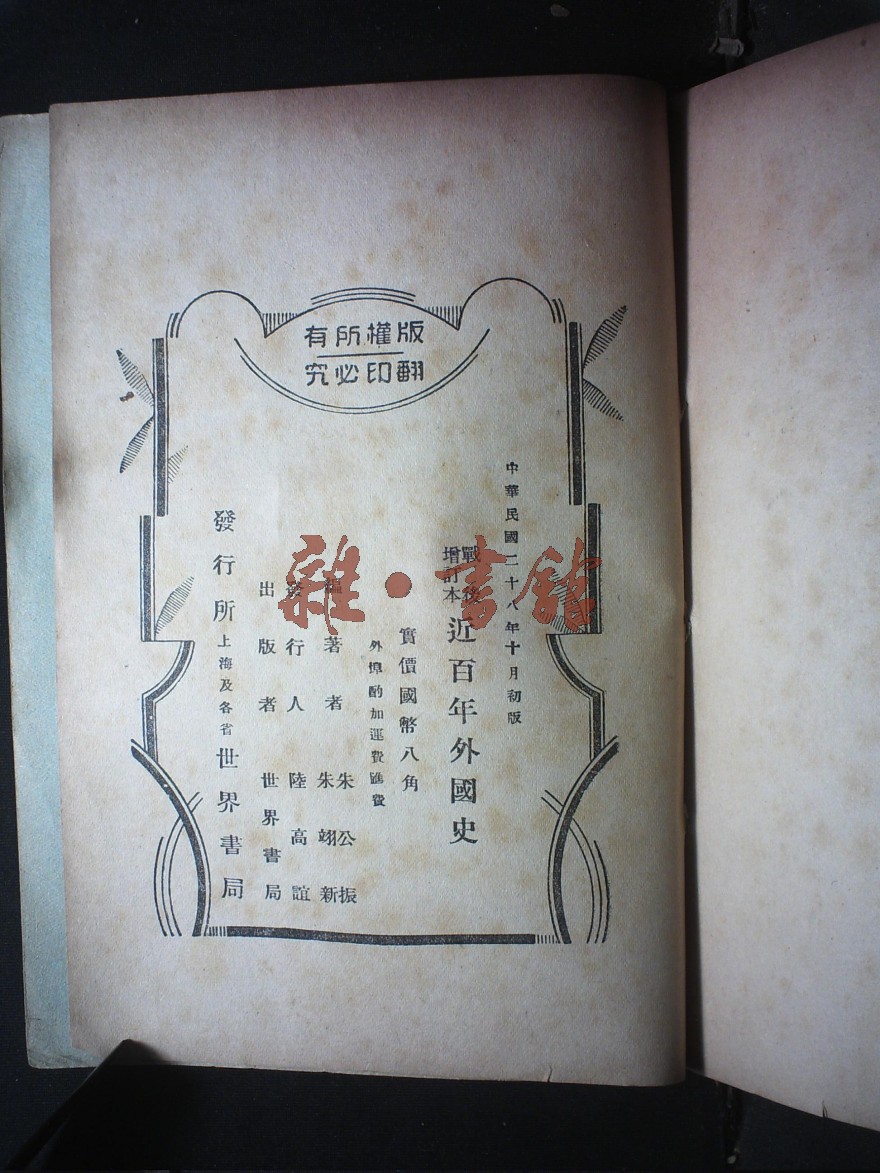 版權所有
翻印必究
中華民國二十八年十月初版
戰後
增訂本
近百年外國史
實價國幣八角
外埠酌加運費匯費
編著者 朱公振
朱翊新
發行人 陸高誼
出版者 世界書局
發行所 上海及各省 世界書局
雜·書館